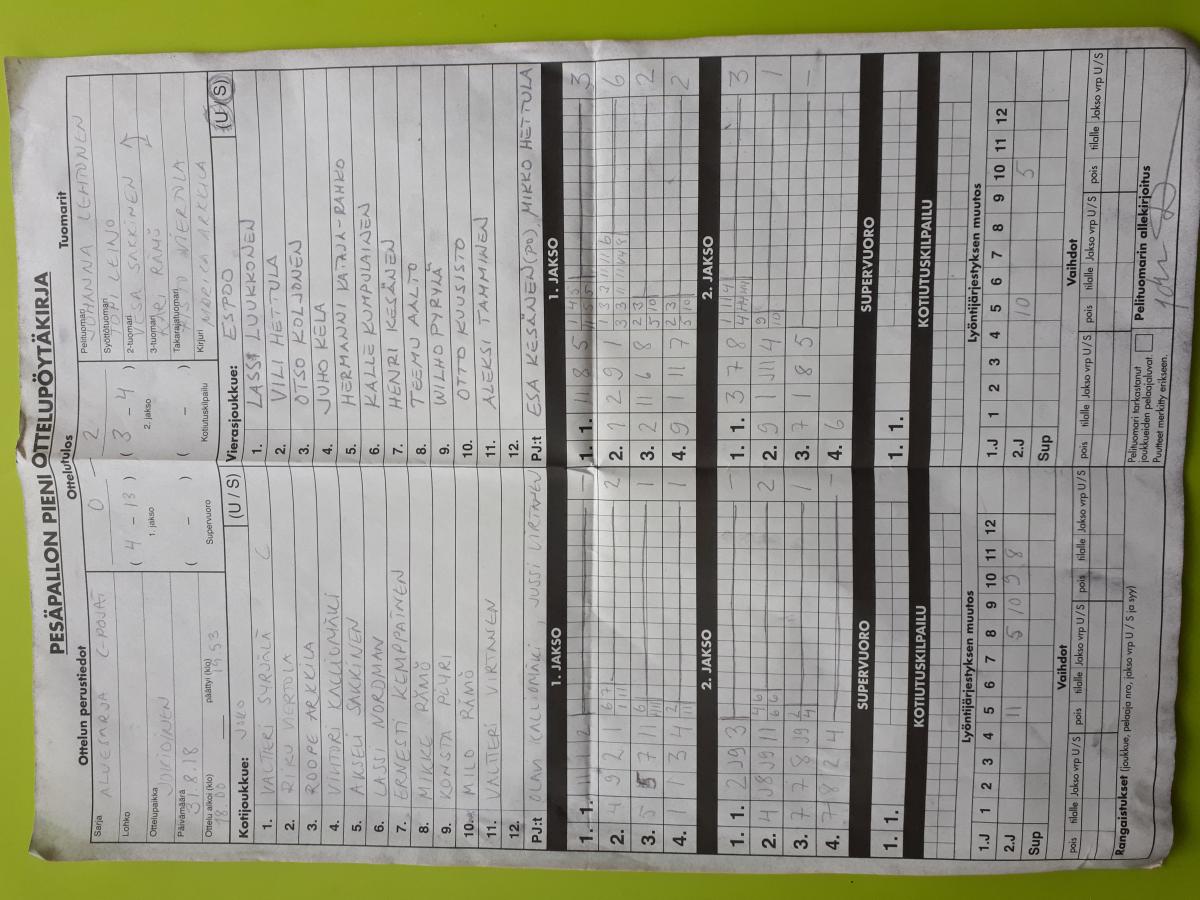 PESÄPALLON PIENI OTTELUPÖYTÄKIRJA
Ottelun perustiedot
Sarja
ALUESARJA C-POJAT
Lohko
Ottelupaikka
JOKIOINEN
Päivämäärä
31.8.18
Ottelu alkoi (klo) päättyi (klo)
18.00 1953
Ottelutulos
0 - 2
( 4 - 13 ) ( 3 - 4 )
1. jakso 2. jakso
( - ) ( - )
Supervuoro Kotiutuskilpailu
Tuomarit
Pelituomari
JOHANNA LEHTONEN
Syöttötuomari
TOMI LEINO
2-tuomari
VESA SAKKINEN
3-tuomari
KARI RÄMÖ
Takarajatuomari
Kirjuri MARIKA ARKKILA
Kotijoukkue: JOKO (U / S)
1. VALTTERI SYRJÄLÄ C
2. RIKU VIERTOLA
3. ROOPE ARKKILA
4. VIHTORI KALLIOMÄKI
5. AKSELI SAKKINEN
6. LASSI NORJMAN
7. ERNESTI KEMPPAINEN
8. MIKKE RÄMÖ
9. KONSTA PLYRI
10. MILO RÄMÖ
11. VALTTER VIRTANEN
12.
PJ:t OLAVI KALLIOMÄKI, JUSSI VIRTANEN
Vierasjoukkue: ESPOO (U / S)
1. LASSI LUUKKONEN
2. VILI HETTULA
3. OTSO KOLJONEN
4. JUHO KELA
5. HERMANNI KATAJA-RAHKO
6. KALLE KUMPULAINEN
7. HENRI KESÄNEN
8. TEEMU AALTO
9. WILHO PYRYLÄ
10. OTTO KUUSISTO
11. ALEKSI TAMMINEN
12.
PJ:t ESA KESÄNEN (PO), MIKKO HETTULA
1. JAKSO 1. JAKSO
1. 1. 1 11 2 - 1. 1. 11 8 5 3
2. 4 9 2 1 2 2. 1 2 9 1 6
3. 5 5 7 11 1 3. 2 11 6 8 2
4. 1 1 3 4 1 4. 9 1 11 7 2
2. JAKSO 2. JAKSO
1. 1. 2 J9 3 - 1. 1. 3 7 8 3
2. 4 J8 J9 11 2 2. 9 1 J11 4 1
3. 7 7 8 J9 1 3. 7 1 8 5 -
4. 7 8 2 4 - 4. 6
SUPERVUORO SUPERVUORO
1. 1. 1. 1.
KOTIUTUSKILPAILU KOTIUTUSKILPAILU
Lyöntijärjestyksen muutos Lyöntijärjestyksen muutos
1.J 1 2 3 4 5 6 7 8 9 10 11 12 1.J 1 2 3 4 5 6 7 8 9 10 11 12
2.J 11 5 10 9 8 2.J 10 5
Sup Sup
Vaihdot Vaihdot
pois tilalle Jakso vrp U/S pois tilalle Jakso vrp U/S pois tilalle Jakso vrp U/S pois tilalle Jakso vrp U/S pois tilalle Jakso vrp U/S pois tilalle Jakso vrp U/S
Rangaistukset (joukkue, pelaaja nro, jakso vrp U / S ja syy)
Pelituomari tarkastanut
joukkueiden pelaajaluvat
Puutteet merkitty erikseen.
Pelituomarin allekirjoitus